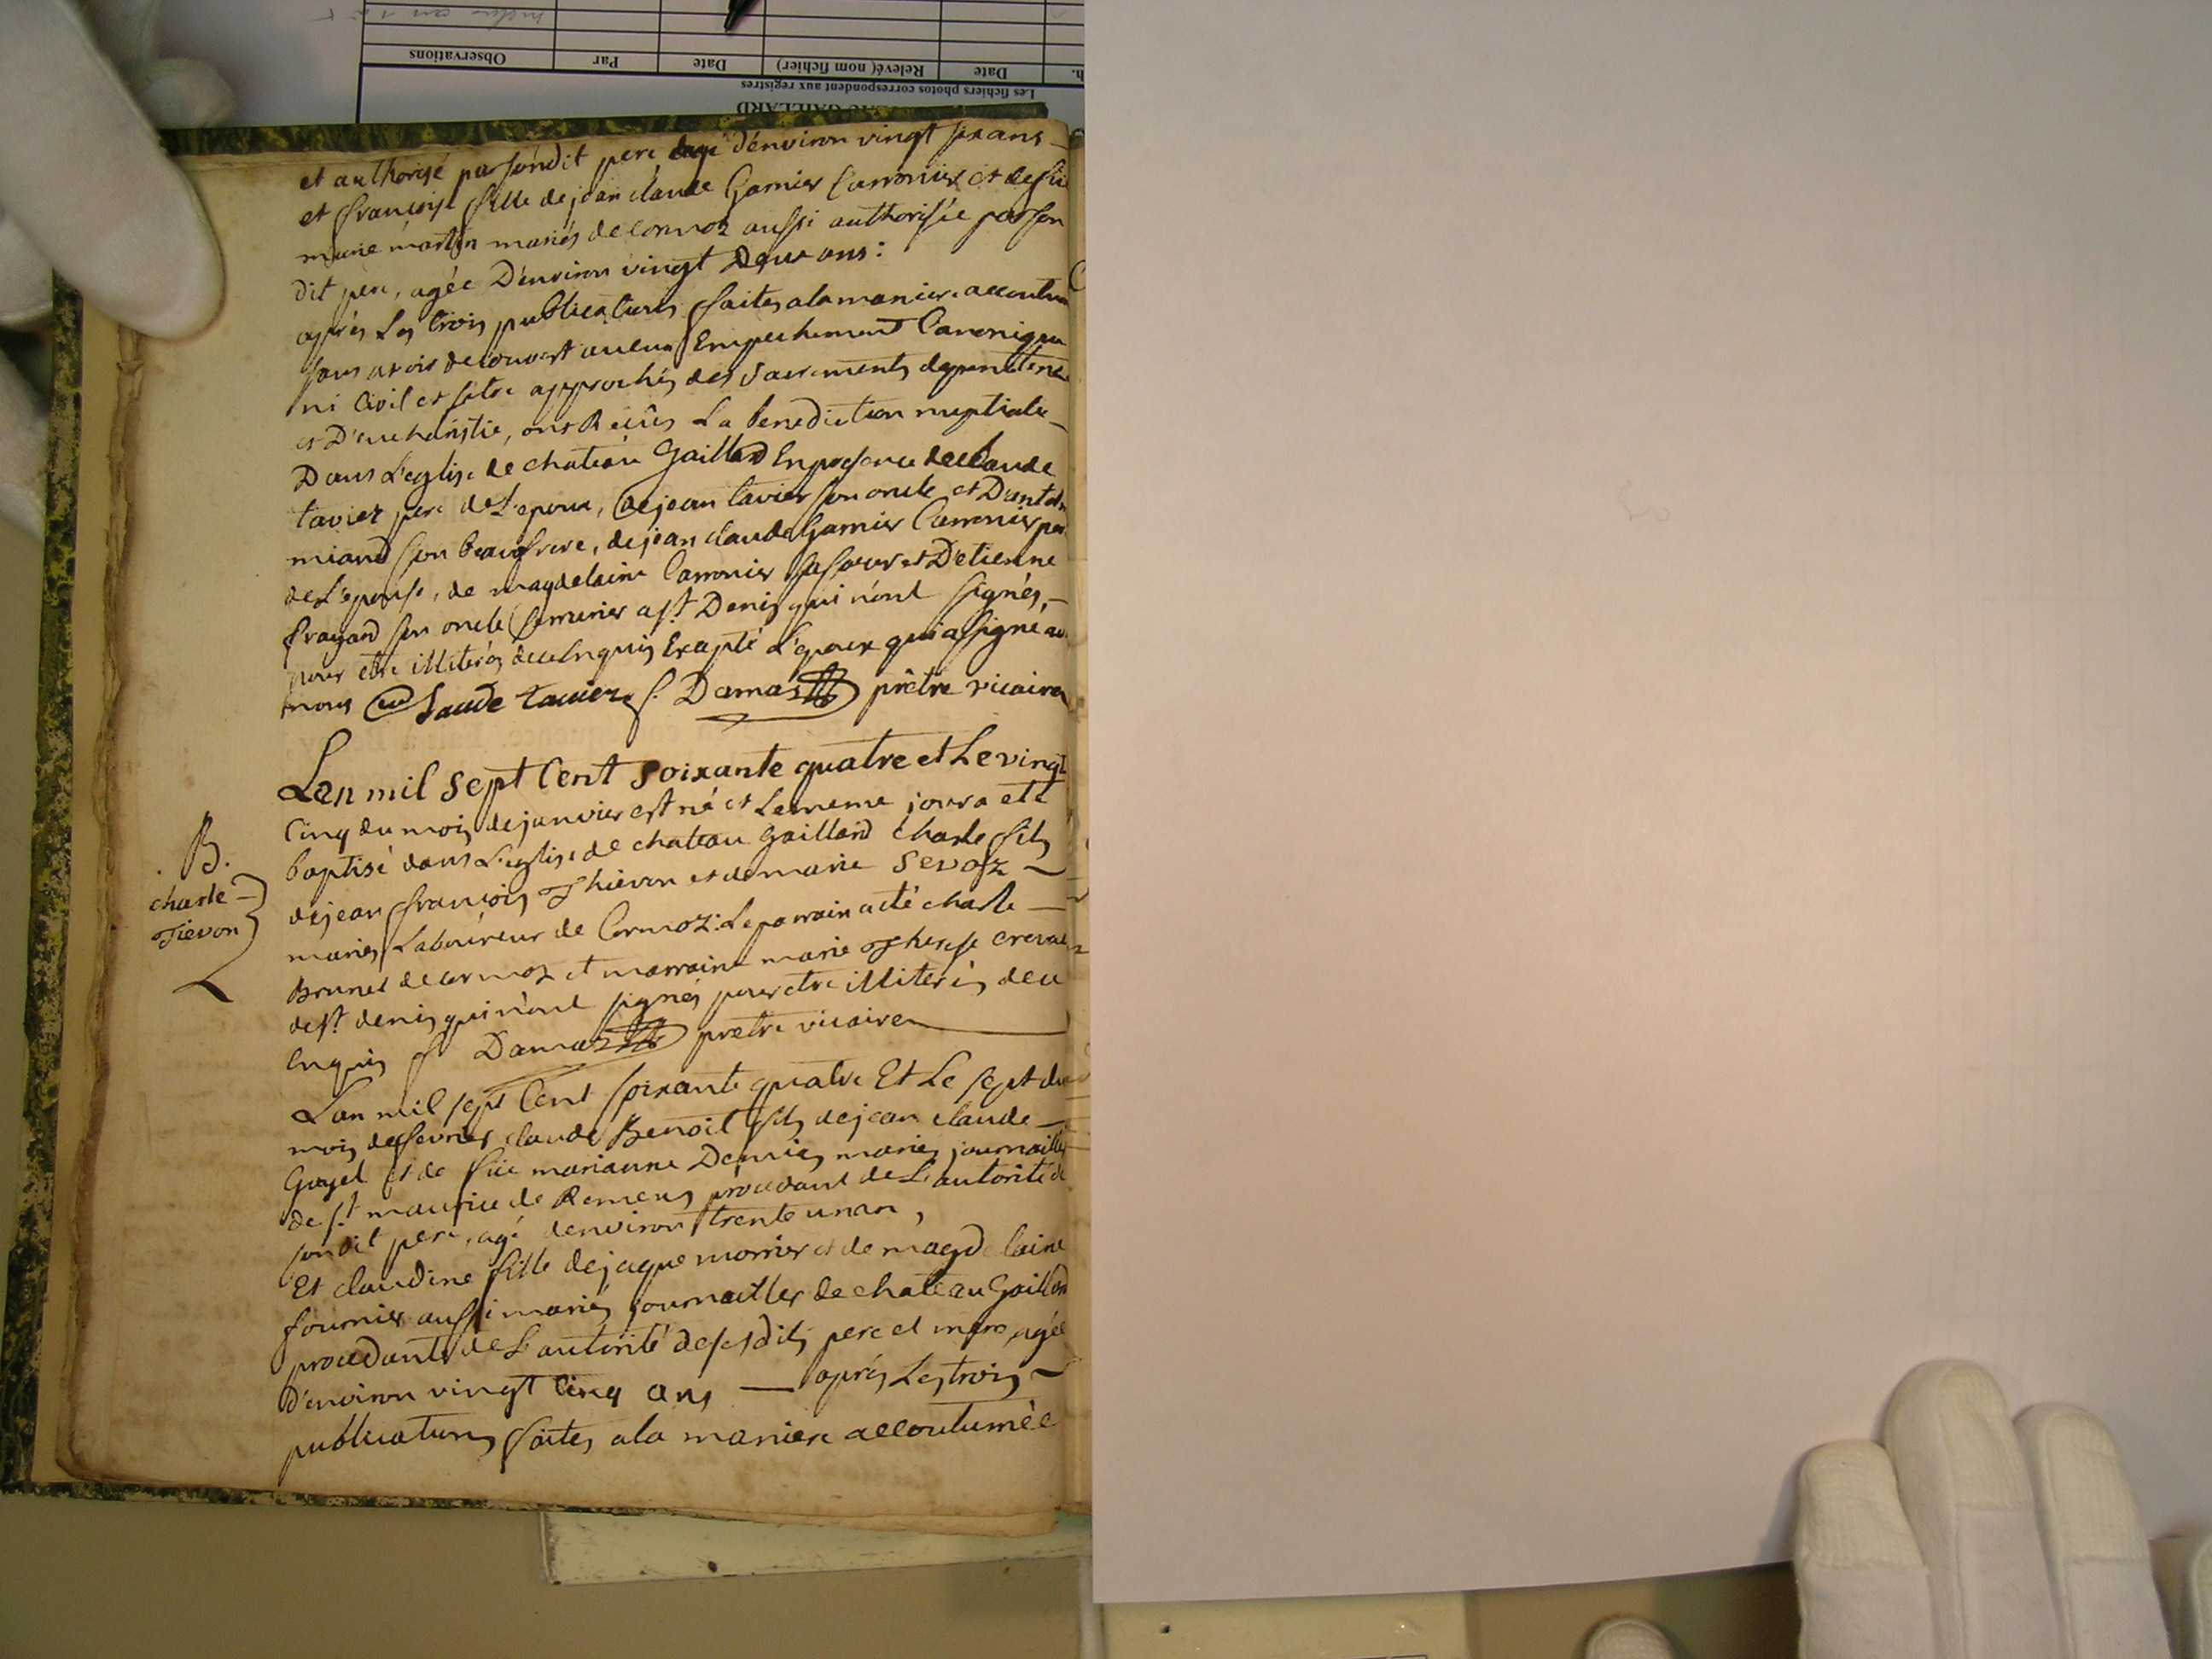 Observations Par Date Relevé( nom fichier) Date
Les fichiers photos correspondent aux registres
GAILLARD
et authorisé par sondit pere agé d'environ vingt six ans
et françoise fille de jean claude Garnier Carronier et de feüe
marie martin mariés de cormoz aussi authorisée par son
dit pere, agée D'environ vingt Deux ans :
après Les trois publications faites a la maniere accoutum
sans avoir decouvert aucun Empechement Canonique
ni Civil et s'etre approchés des Sacrements de penitence
et D'eucharistie, ont Reçûs La benediction nuptiale
Dans L'eglise de chateau Gaillard En presence de claude
tavier pere de L'epoux, de jean tavier son oncle et D'antoin
miand son beaufrere, de jean claude Garnier Carronier per
de L'epouse, de magdelaine Carronier sa soeur et D'etienne
frayard son oncle a st Denis qui n'ont signés,
pour etre illiterés de ce Enquis Exapté L'epoux qui a signé av
nous Claude tavier f. Damas prêtre vicaire
Lan mil sept Cent soixante quatre et Le vingt
Cinq du mois de janvier est né et Le meme jour a eté
baptisé dans L'eglise de chateau gaillard charle fils
de jean françois Thievon et de marie Sevoz
mariés Laboureur de Cormoz: Le parrain a eté charle
Brunet de cormoz et marraine marie Therese
de st. denis qui n'ont signés pour etre illiterés de ce
Enquis f Damas pretre vicaire
B.
charle
Tievon
Lan mil sept Cent soixante quatre Et Le sept du
mois de fevrier claude Benoit fils de jean claude
Guyel et de feüe marianne Demies mariés journaillier
de st. maurice de Remens, procedant de L'autorité de
son dit pere, agé denviron trente un an,
Et claudine fille de jaque morrier et de magdelaine
fournier aussi mariés journaillier de chateau Gaillard
procedante de L'autorité de sesdits pere et mere, agée
D'environ vingt Cinq ans — après Les trois
publications faites a la maniere accoutumée